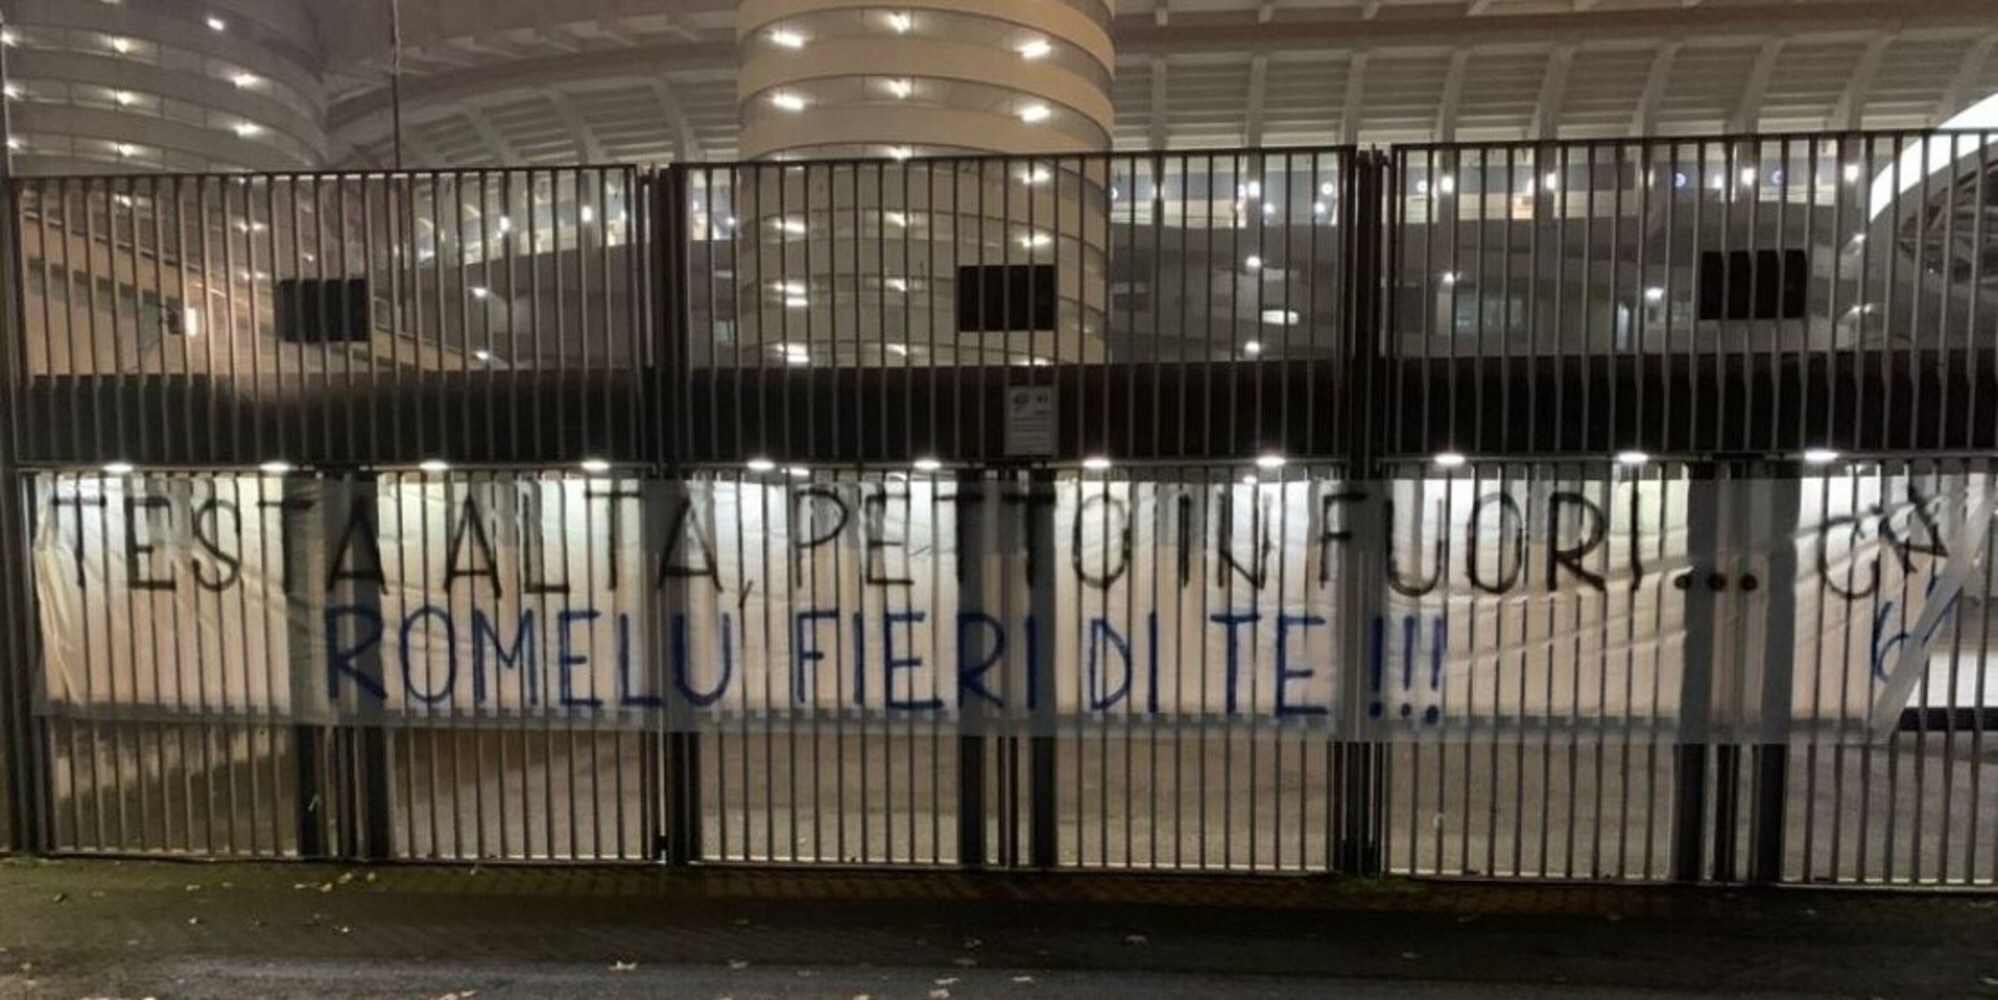 TESTA ALTA, PETTO IN FUORI... CN
ROMELU FIERI DI TE !!!
69